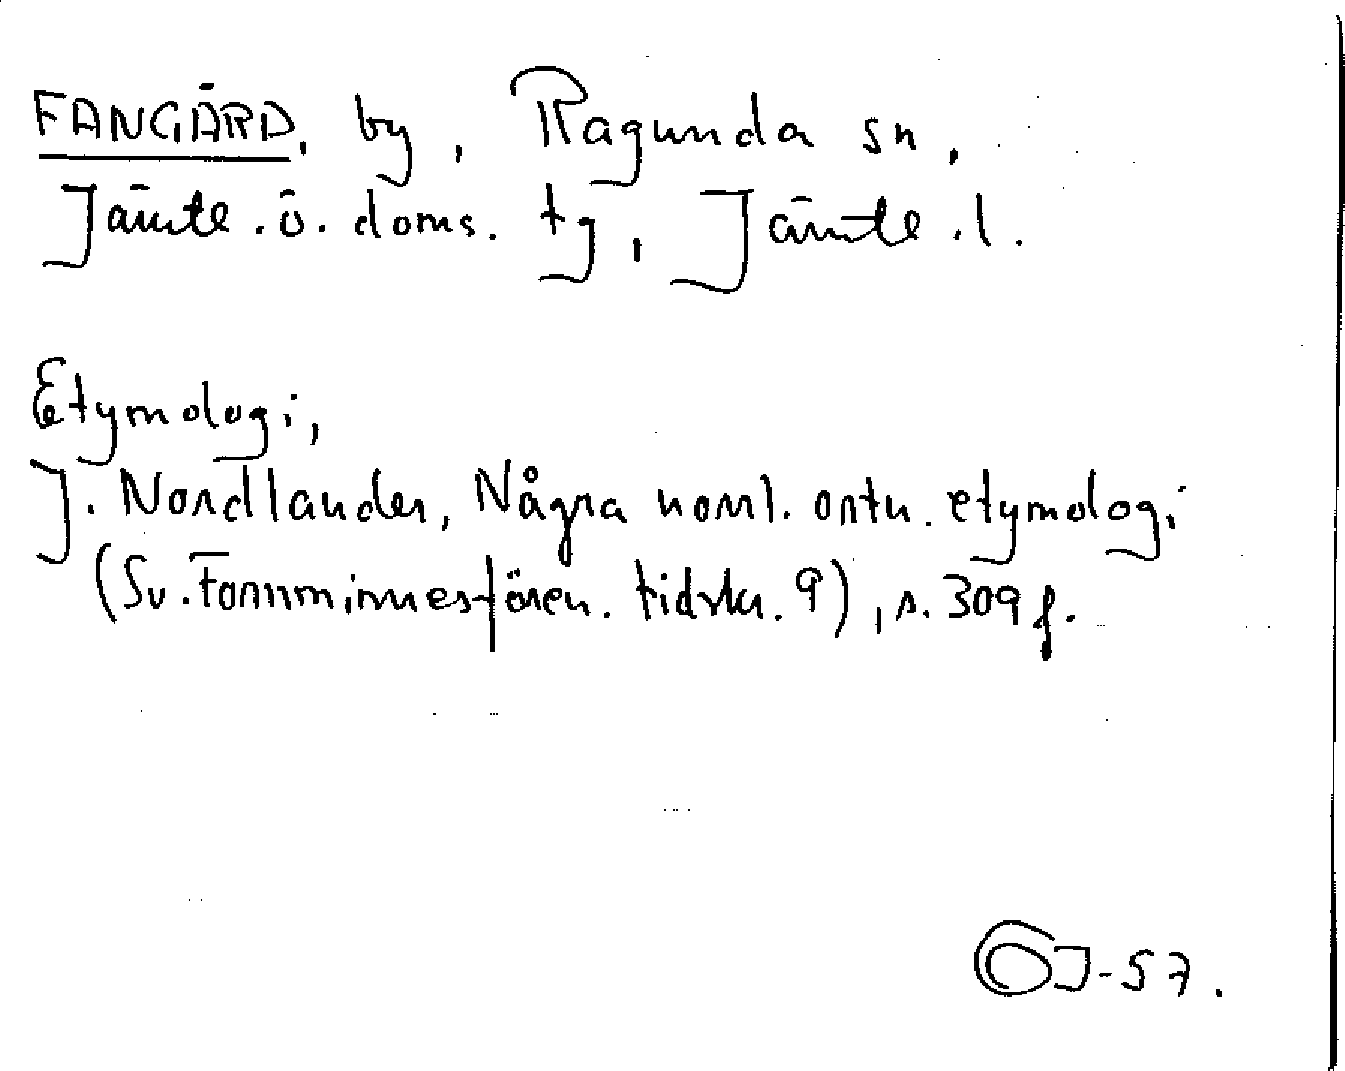 FANGÅRD, by, Ragunda sn,
Jämte. ö. doms. tg, Jämte. l.
Etymologi,
J. Nordlander, Några norrl. ortn. etymologi
(Sv. Fornminnesfören. tidskr. 9), s. 309 f.
J-57.